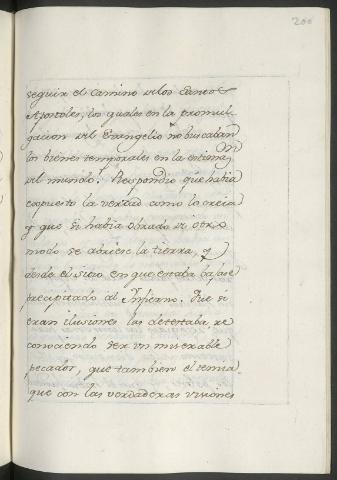 200
seguir el camino de los Santos
Apostoles, los quales en la promul-
gacion del Evangelio no buscaban
los bienes temporales en la estima.on
del mundo. Respondió que havia
expuesto la verdad como lo creia
y que si havia obrado de otro
modo se abriese la tierra, y
desde el sitio en que estaba bajase
precipitado al Infierno. Que si
eran ilusiones las detestaba re
conociendo ser un miserable
pecador, que tambien el temia
que con las verdaderas visiones